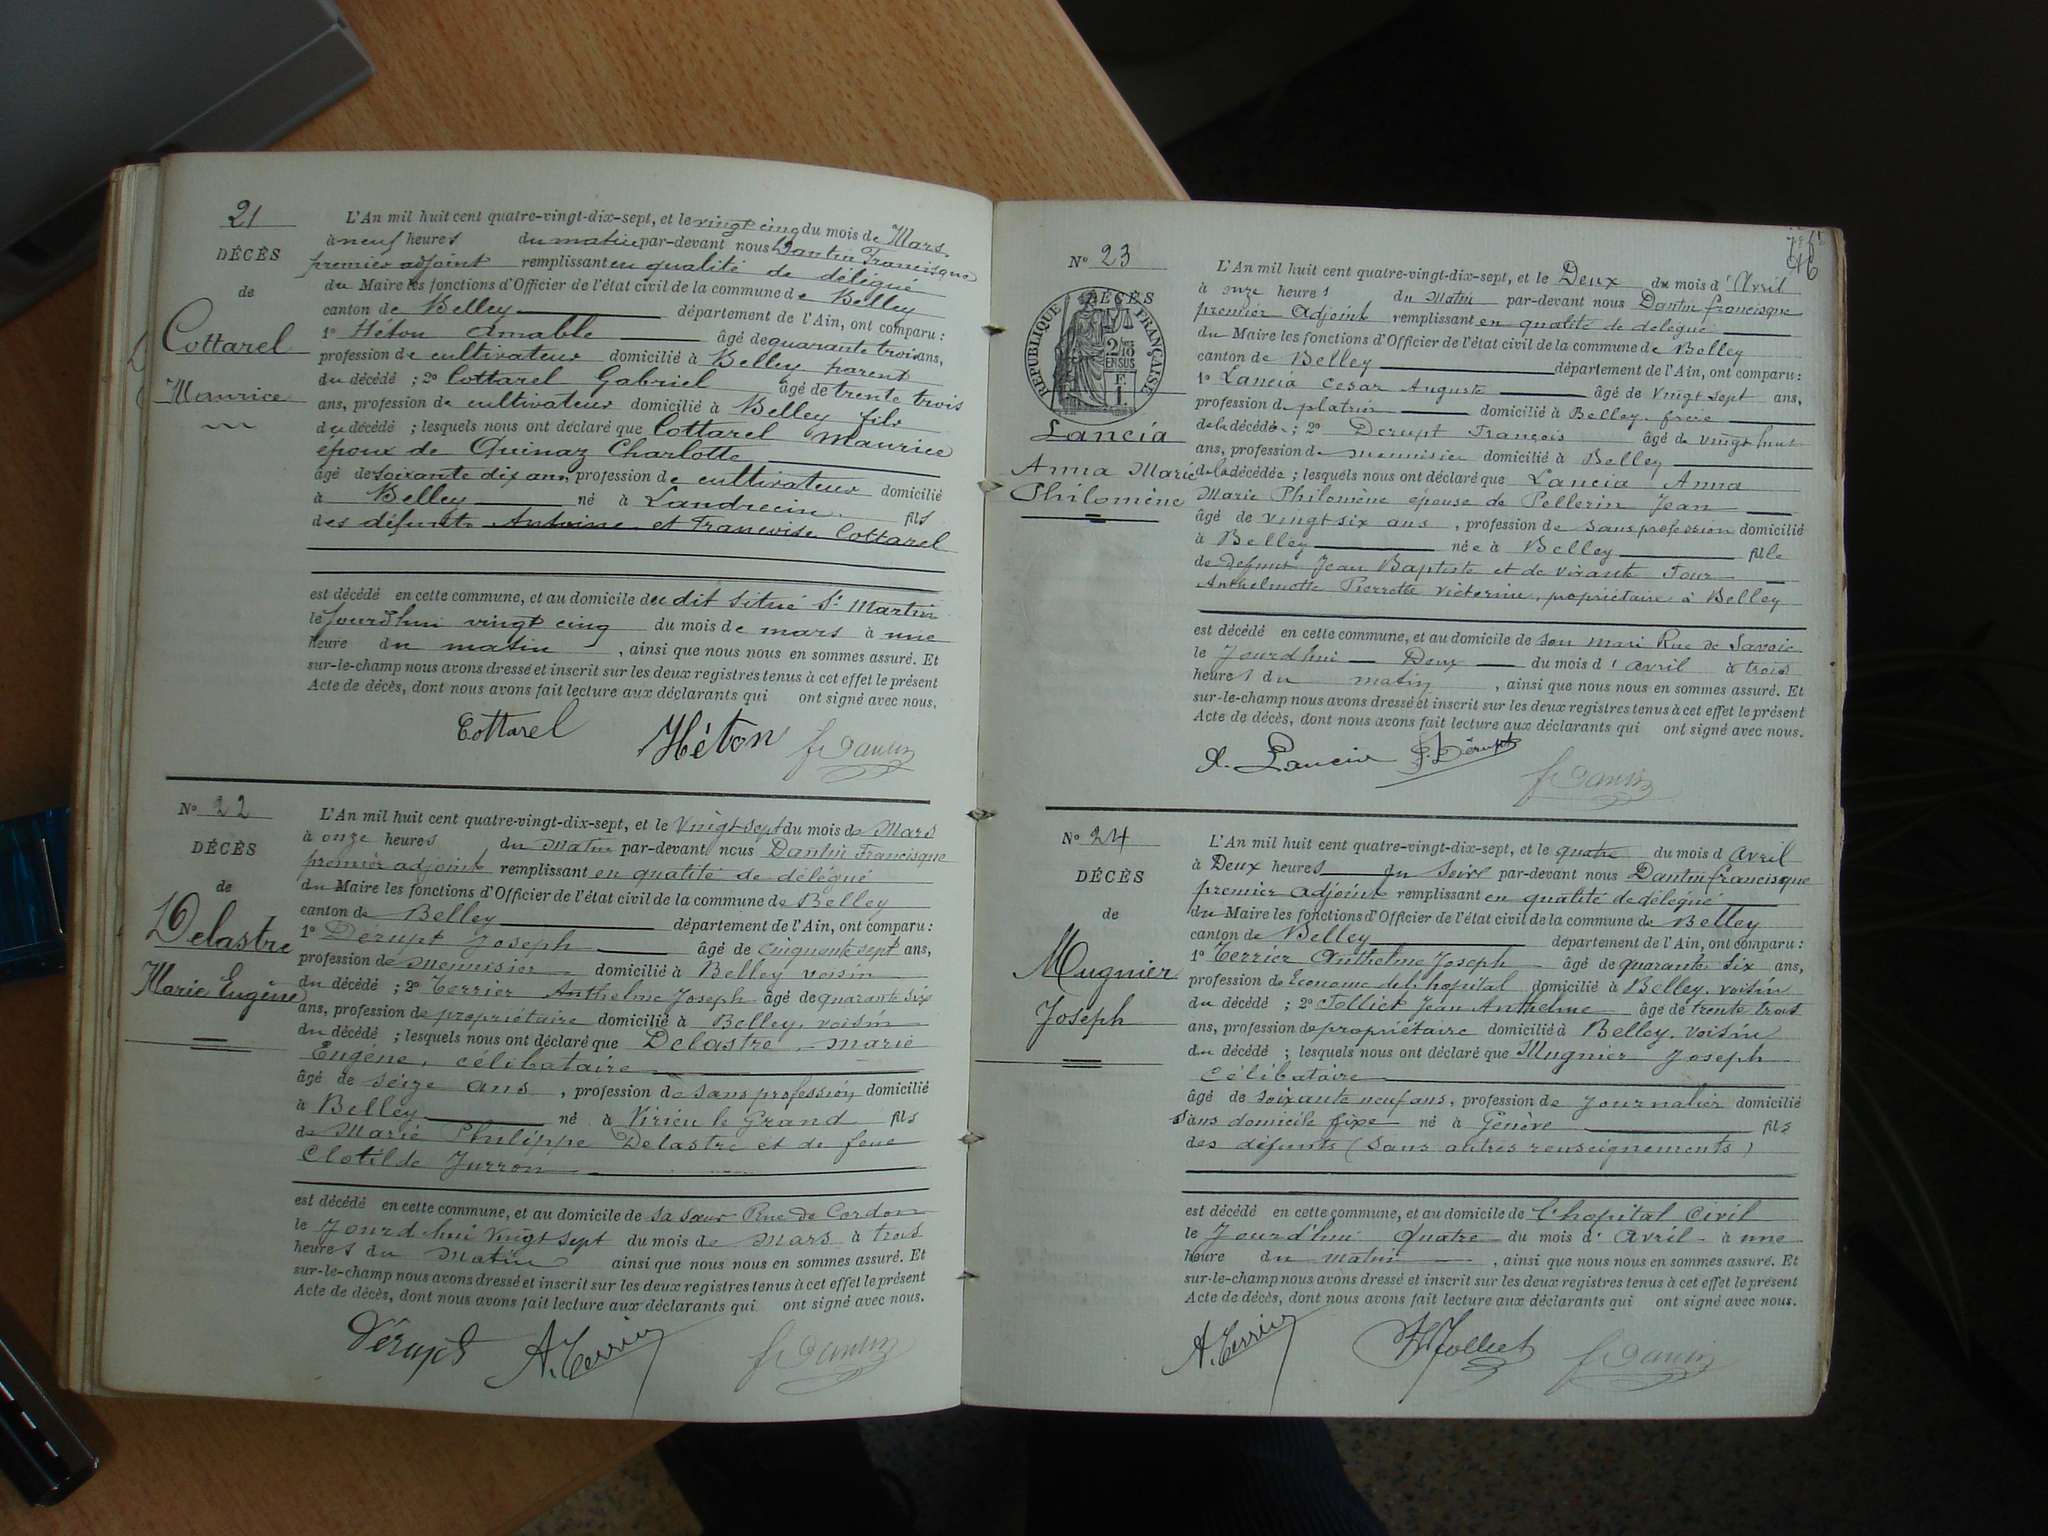 21
DÉCÈS
de
Cottarel
Maurice
L'An mil huit cent quatre-vingt-dix-sept, et le vingt cinq du mois de Mars
à neuf heures du matin par-devant nous Dantin Francisque
premier adjoint remplissant en qualité de délégué
du Maire les fonctions d'Officier de l'état civil de la commune de Belley
canton de Belley département de l'Ain, ont comparu :
1º Héton Amable âgé de quarante trois ans,
profession de cultivateur domicilié à Belley parent
du décédé ; 2º Cottarel Gabriel âgé de trente trois
ans, profession de cultivateur domicilié à Belley fils
du décédé ; lesquels nous ont déclaré que Cottarel Maurice
époux de Quinaz Charlotte
âgé de soixante dix ans, profession de cultivateur domicilié
à Belley né à Landrecin fils
des défunts Antoine et Francoise Cottarel
est décédé en cette commune, et au domicile du dit situé St Martin
le jourd'hui vingt cinq du mois de mars à une
heure du matin, ainsi que nous nous en sommes assuré. Et
sur-le-champ nous avons dressé et inscrit sur les deux registres tenus à cet effet le présent
Acte de décès, dont nous avons fait lecture aux déclarants qui ont signé avec nous.
Cottarel Héton fr Dantin
Nº 22
DÉCÈS
de
Delastre
Marie Eugène
L'An mil huit cent quatre-vingt-dix-sept, et le vingt sept du mois de Mars
à onze heures du Matin par-devant nous Dantin Francisque
premier adjoint remplissant en qualité de délégué
du Maire les fonctions d'Officier de l'état civil de la commune de Belley
canton de Belley département de l'Ain, ont comparu :
1º Derupt Joseph âgé de cinquante sept ans,
profession de menuisier domicilié à Belley voisin
du décédé ; 2º Terrier Anthelme Joseph âgé de quarante six
ans, profession de propriétaire domicilié à Belley, voisin
du décédé ; lesquels nous ont déclaré que Delastre, Marie
Eugène, célibataire
âgé de seize ans, profession de sans profession domicilié
à Belley né à Virieu le Grand fils
de Marie Philippe Delastre et de feue
Clotilde Jurron
est décédé en cette commune, et au domicile de sa sœur Rue de Cordon
le Jourd'hui vingt sept du mois de Mars à trois
heures du Matin ainsi que nous nous en sommes assuré. Et
sur-le-champ nous avons dressé et inscrit sur les deux registres tenus à cet effet le présent
Acte de décès, dont nous avons fait lecture aux déclarants qui ont signé avec nous.
Dérupt A. Terrier fr Dantin
46
Nº 23
DÉCÈS
RÉPUBLIQUE FRANÇAISE
Lancia
Anna Marie
Philomène
L'An mil huit cent quatre-vingt-dix-sept, et le Deux du mois d'Avril
à onze heures du Matin par-devant nous Dantin francisque
premier Adjoint remplissant en qualité de délégué
du Maire les fonctions d'Officier de l'état civil de la commune de Belley
canton de Belley département de l'Ain, ont comparu :
1º Lancia Cesar Auguste âgé de vingt sept ans,
profession de platrier domicilié à Belley, frère
de la décédée ; 2º Derupt François âgé de vingt huit
ans, profession de menuisier domicilié à Belley
de la décédée ; lesquels nous ont déclaré que Lancia Anna
Marie Philomène épouse de Pellerin Jean
âgé de vingt six ans, profession de sans profession domicilié
à Belley née à Belley fille
de défunt Jean Baptiste et de vivante Tour
Anthelmette Pierrette Victorine, propriétaire à Belley
est décédé en cette commune, et au domicile de son mari Rue de Savoie
le Jourd'hui Deux du mois d'avril à trois
heures du matin, ainsi que nous nous en sommes assuré. Et
sur-le-champ nous avons dressé et inscrit sur les deux registres tenus à cet effet le présent
Acte de décès, dont nous avons fait lecture aux déclarants qui ont signé avec nous.
Lancia Dérupt fr Dantin
Nº 24
DÉCÈS
de
Mugnier
Joseph
L'An mil huit cent quatre-vingt-dix-sept, et le quatre du mois d'avril
à Deux heures du soir par-devant nous Dantin francisque
premier adjoint remplissant en qualité de délégué
du Maire les fonctions d'Officier de l'état civil de la commune de Belley
canton de Belley département de l'Ain, ont comparu :
1º Terrier Anthelme Joseph âgé de quarante six ans,
profession de Econome de l'hopital domicilié à Belley, voisin
du décédé ; 2º Jolliet Jean Anthelme âgé de trente trois
ans, profession de propriétaire domicilié à Belley, voisin
du décédé ; lesquels nous ont déclaré que Mugnier Joseph
célibataire
âgé de soixante neuf ans, profession de journalier domicilié
sans domicile fixe né à Genève fils
des défunts (sans autres renseignements)
est décédé en cette commune, et au domicile de l'hopital Civil
le Jourd'hui Quatre du mois d'Avril à une
heure du matin, ainsi que nous nous en sommes assuré. Et
sur-le-champ nous avons dressé et inscrit sur les deux registres tenus à cet effet le présent
Acte de décès, dont nous avons fait lecture aux déclarants qui ont signé avec nous.
A. Terrier Jolliet fr Dantin